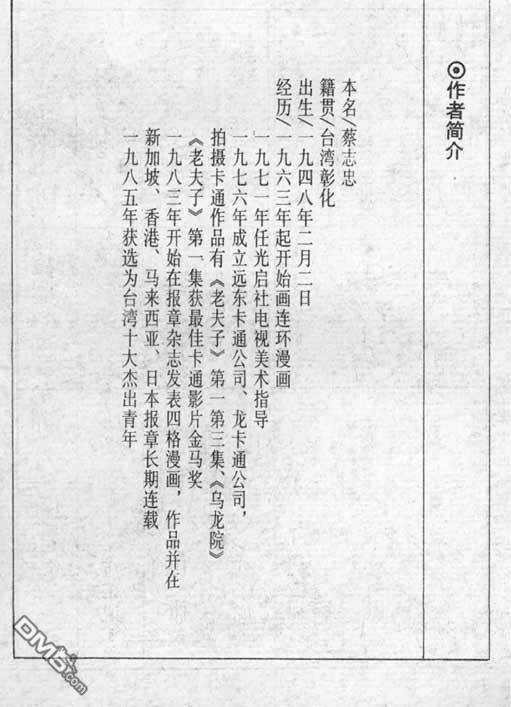 ⊙作者简介
本名/蔡志忠
籍贯/台湾彰化
出生/一九四八年二月二日
经历/一九六三年起开始画连环漫画
一九七一年任光启社电视美术指导
一九七六年成立远东卡通公司、龙卡通公司，
拍摄卡通作品有《老夫子》第一第三集、《乌龙院》
《老夫子》第一集获最佳卡通影片金马奖
一九八三年开始在报章杂志发表四格漫画，作品并在
新加坡、香港、马来西亚、日本报章长期连载
一九八五年获选为台湾十大杰出青年
DM5.com